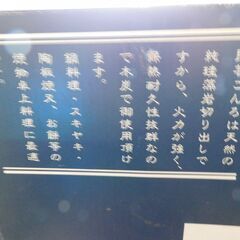 こんろは天然の
純珪藻岩切り出しで
すから、火力が強く、
熱耐久性抜群なの
で木炭で御使用頂け
ます。
鍋料理・スキヤキ・
陶板焼又、お餅等の
焼物卓上料理に最適